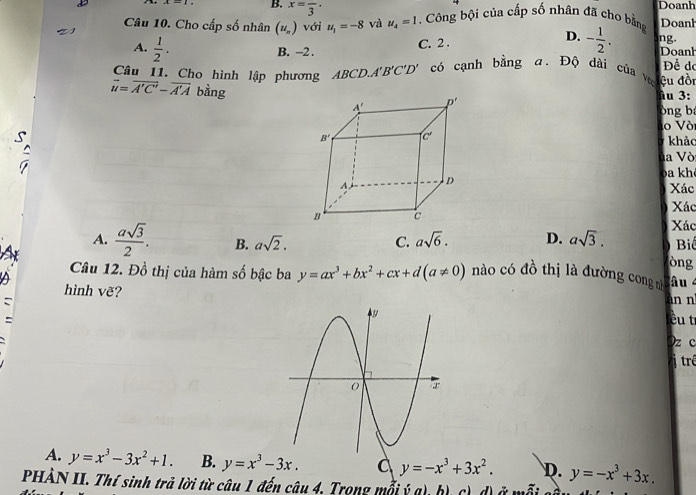 B. x = 1/3.
Câu 10. Cho cấp số nhân (uₙ) với u₁ = −8 và u₄ = 1. Công bội của cấp số nhân đã cho bằng
A. 1/2. B. −2. C. 2. D. −1/2.
Câu 11. Cho hình lập phương ABCD.A'B'C'D' có cạnh bằng a. Độ dài của
u⃗ = A'C'⃗ − A'A⃗ bằng
A' D'
B' C'
A D
B C
A. a√3/2. B. a√2. C. a√6. D. a√3.
Câu 12. Đồ thị của hàm số bậc ba y = ax³ + bx² + cx + d (a ≠ 0) nào có đồ thị là đường cong
hình vẽ?
y
O x
A. y = x³ − 3x² + 1. B. y = x³ − 3x. C. y = −x³ + 3x². D. y = −x³ + 3x.
PHẦN II. Thí sinh trả lời từ câu 1 đến câu 4. Trong mỗi ý a), b), c), d) ở mỗi
Doanh
Doanh
ng.
Doanh
Để
khảo
Xác
Xác
Xác